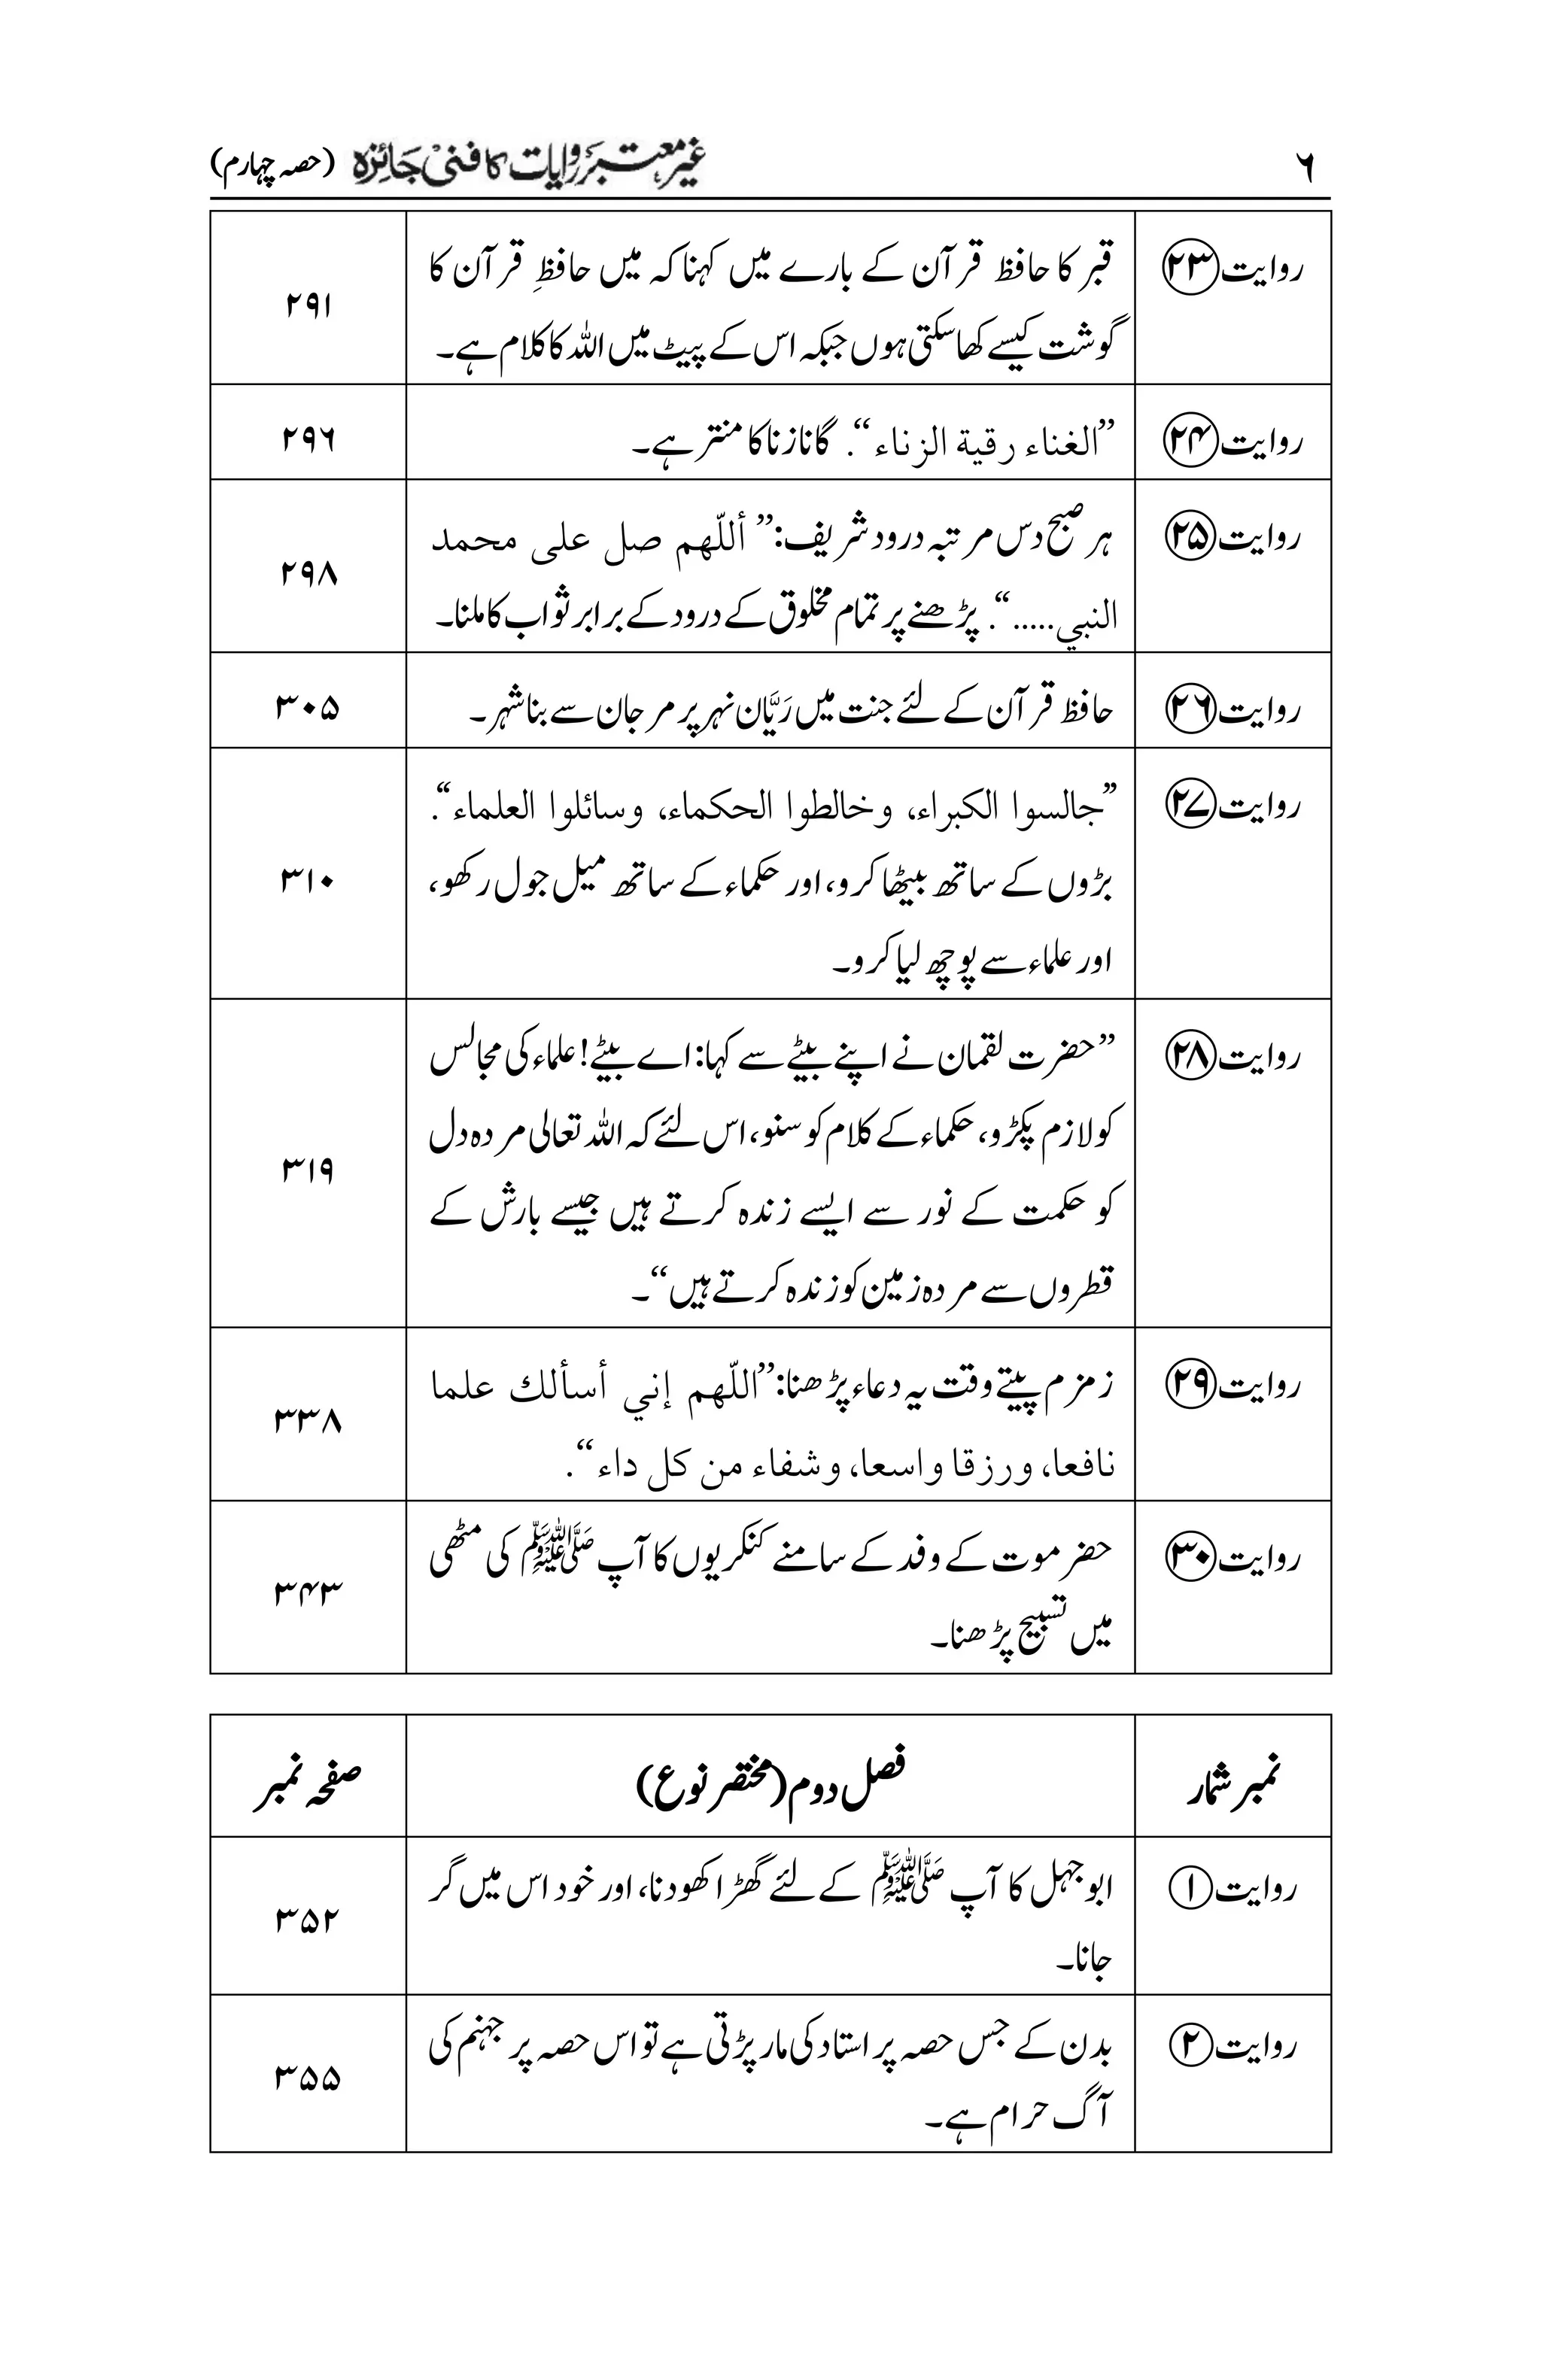 ۶ غیر معتبر روایات کا فنی جائزہ (حصہ چہارم)
روایت ۲۳ قبر کا حافظ قرآن کے بارے میں کہنا کہ میں حافظِ قرآن کا
گوشت کیسے کھا سکتی ہوں جبکہ اس کے پیٹ میں اللہ کا کلام ہے۔ ۲۹۱
روایت ۲۴ ”الغناء رقية الزناء“. گانا زنا کا منتر ہے۔ ۲۹۶
روایت ۲۵ ہر صبح دس مرتبہ درود شریف: ”أللّهم صل على محمد
النبي.....“. پڑھنے پر تمام مخلوق کے درود کے برابر ثواب کا ملنا۔ ۲۹۸
روایت ۲۶ حافظ قرآن کے لئے جنت میں رَیَّان نہر پر مرجان سے بنا شہر۔ ۳۰۵
روایت ۲۷ ”جالسوا الكبراء، وخالطوا الحكماء، وسائلوا العلماء“.
بڑوں کے ساتھ بیٹھا کرو، اور حکماء کے ساتھ میل جول رکھو، ۳۱۰
اور علماء سے پوچھ لیا کرو۔
روایت ۲۸ ”حضرت لقمان نے اپنے بیٹے سے کہا: اے بیٹے! علماء کی مجالس
کو لازم پکڑو، حکماء کے کلام کو سنو، اس لئے کہ اللہ تعالی مردہ دل
کو حکمت کے نور سے ایسے زندہ کرتے ہیں جیسے بارش کے ۳۱۹
قطروں سے مردہ زمین کو زندہ کرتے ہیں“۔
روایت ۲۹ زمزم پیتے وقت یہ دعاء پڑھنا: ”اللّهم إني أسألك علما
نافعا، ورزقا واسعا، وشفاء من كل داء“. ۳۳۸
روایت ۳۰ حضرموت کے وفد کے سامنے کنکریوں کا آپ ﷺ کی مٹھی
میں تسبیح پڑھنا۔ ۳۴۳
نمبر شمار فصل دوم (مختصر نوع) صفحہ نمبر
روایت ۱ ابوجہل کا آپ ﷺ کے لئے گھڑا کھودنا، اور خود اس میں گر
جانا۔ ۳۵۲
روایت ۲ بدن کے جس حصہ پر استاد کی مار پڑتی ہے تو اس حصہ پر جہنم کی
آگ حرام ہے۔ ۳۵۵